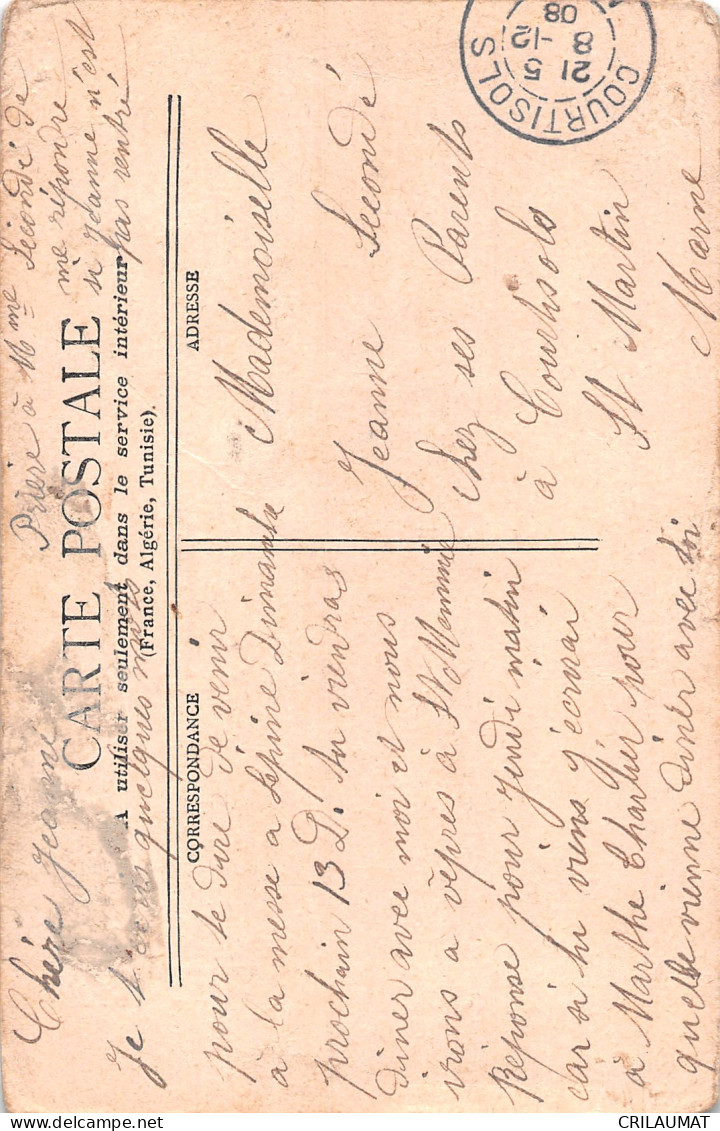 Prière à Mme Secondé de
me répondre
si Jeanne n'est
pas rentré
CARTE POSTALE
A utiliser seulement dans le service intérieur
(France, Algérie, Tunisie).
CORRESPONDANCE
ADRESSE
Chère Jeanne
Je t'écris quelques mots
pour te dire de venir
à la messe a Lépine Dimanche
prochain 13 D. tu viendras
diner avec moi et nous
irons a vêpres à St Memmie
Réponse pour Jeudi matin
car si tu viens j'ecrirai
à Marthe Charlier pour
quelle vienne diner avec toi
Mademoiselle
Jeanne Secondé
chez ses Parents
à Courtisols
St Martin
Marne
COURTISOLS
21 5
8 -12
08
CRILAUMAT